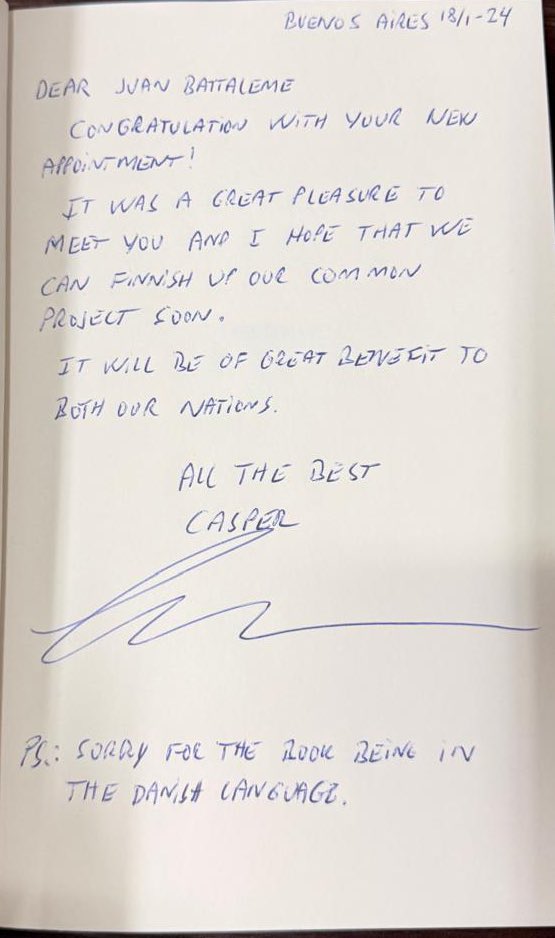 BUENOS AIRES 18/1-24
DEAR JUAN BATTALEME
CONGRATULATION WITH YOUR NEW
APPOINTMENT!
IT WAS A GREAT PLEASURE TO
MEET YOU AND I HOPE THAT WE
CAN FINNISH UP OUR COMMON
PROJECT SOON.
IT WILL BE OF GREAT BENEFIT TO
BOTH OUR NATIONS.
ALL THE BEST
CASPER
PS.: SORRY FOR THE BOOK BEING IN
THE DANISH LANGUAGE.